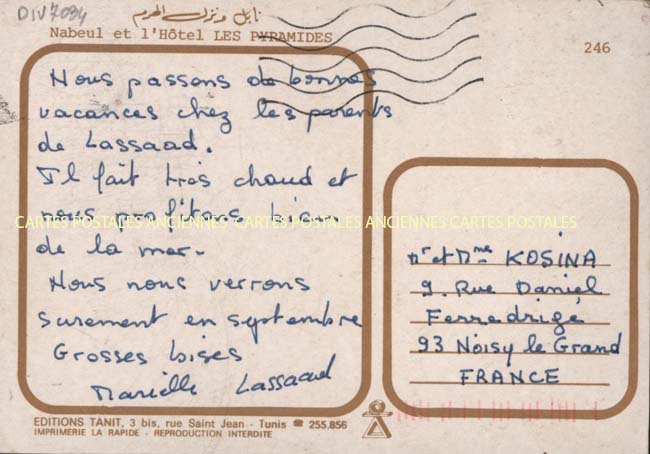 DIV7034
نابل ونزل الاهرام
Nabeul et l'Hôtel LES PYRAMIDES
246
Nous passons de bonnes
vacances chez les parents
de Lassaad.
Il fait très chaud et
nous profitons bien
de la mer.
Nous nous verrons
surement en septembre
Grosses bises
Marielle Lassaad
CARTES POSTALES ANCIENNES CARTES POSTALES ANCIENNES CARTES POSTALES
Mr et Mme KOSINA
9. Rue Daniel
Ferredrigé
93 Noisy le Grand
FRANCE
EDITIONS TANIT, 3 bis, rue Saint Jean - Tunis ☎ 255.856
IMPRIMERIE LA RAPIDE - REPRODUCTION INTERDITE